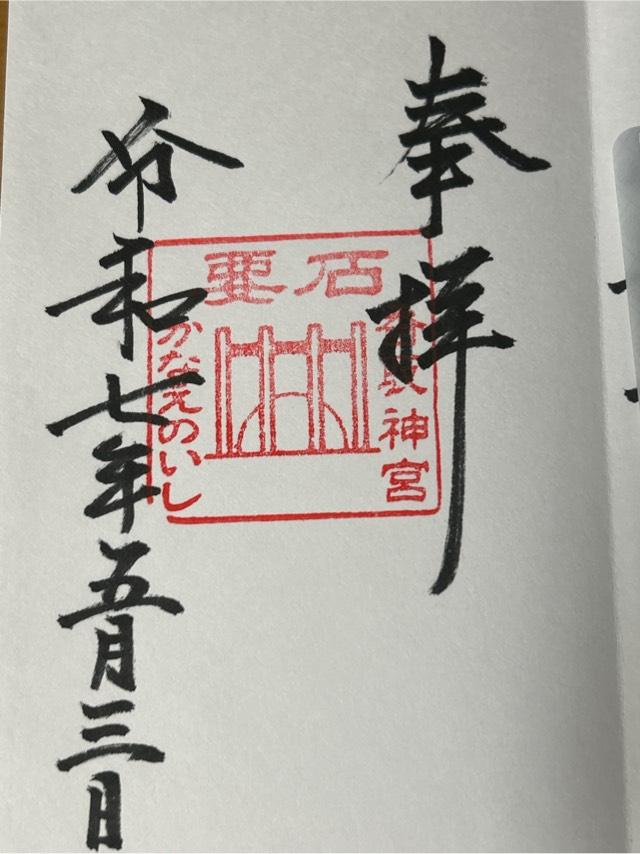 奉拝
香取神宮
要石
かなめのいし
令和七年五月三日